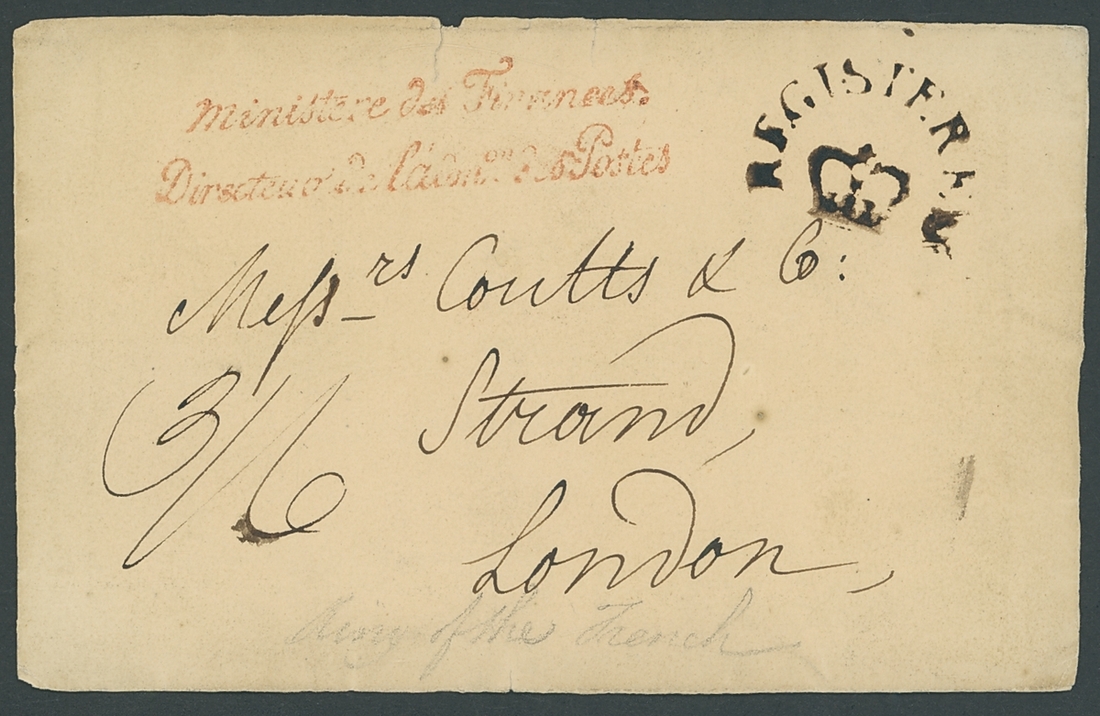 Ministere des Finances.
Directeur de l'adm.on des Postes
REGISTERED
Messrs Coutts & Co:
3/6
Strand,
London,
King of the French